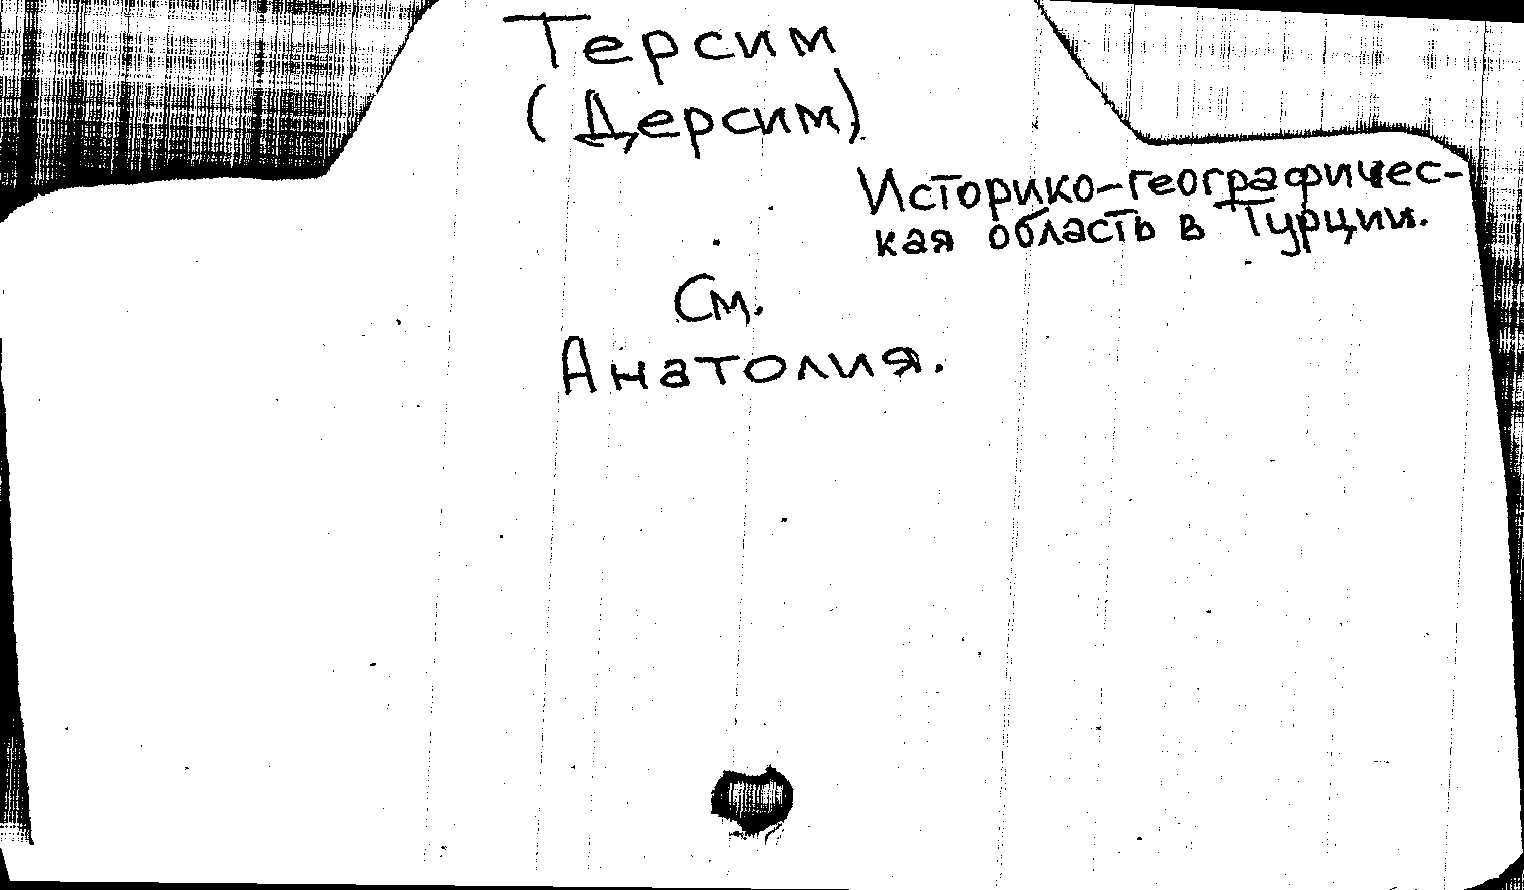 Терсим
(Дерсим)
Историко-географичес-
кая область в Турции.
См.
Анатолия.